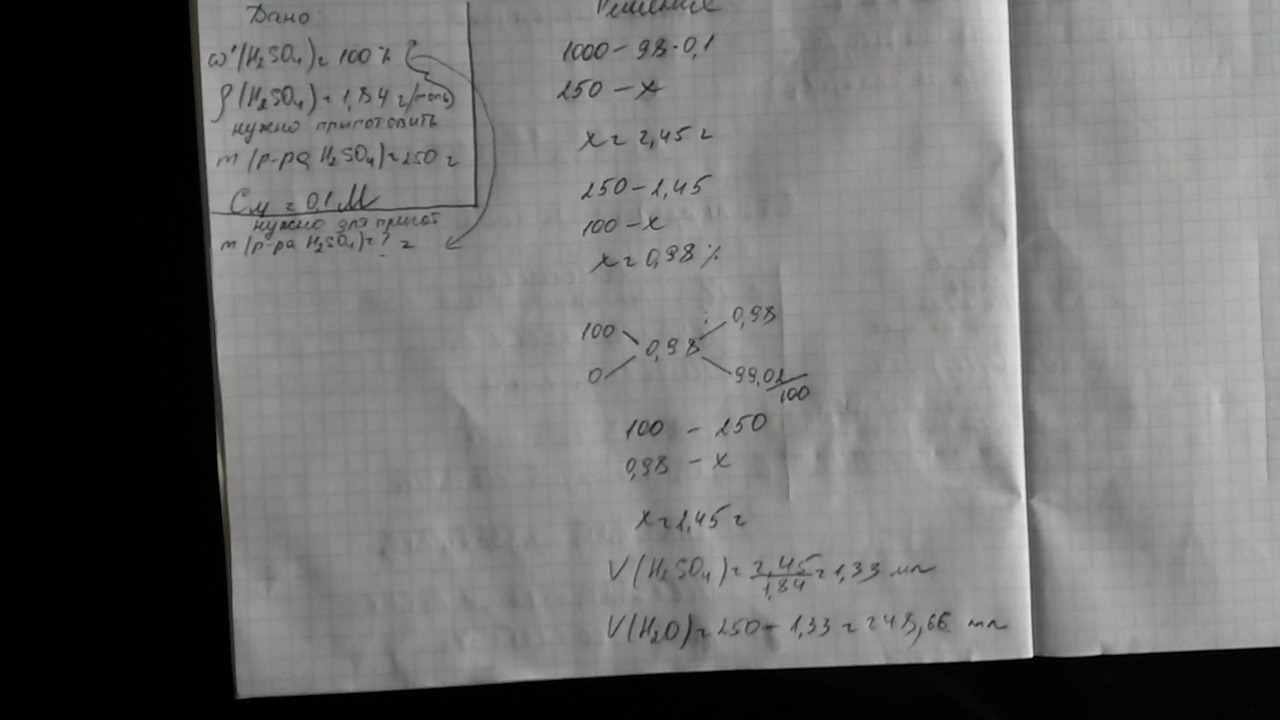 Дано
ω'(H₂SO₄)= 100 %
ρ(H₂SO₄)= 1,84 г/(моль)
нужно приготовить
m (р-ра H₂SO₄)=250 г
См = 0,1 М
нужно для пригот
m (р-ра H₂SO₄)= ? г
Решение
1000 - 98·0,1
250 - x
x = 2,45 г
250 - 2,45
100 - x
x = 0,98 %
100 0,98
0,98
0 99,02
100
100 - 250
0,98 - x
x = 2,45 г
V (H₂SO₄) = 2,45/1,84 = 1,33 мл
V(H₂O) = 250 - 1,33 = 248,66 мл